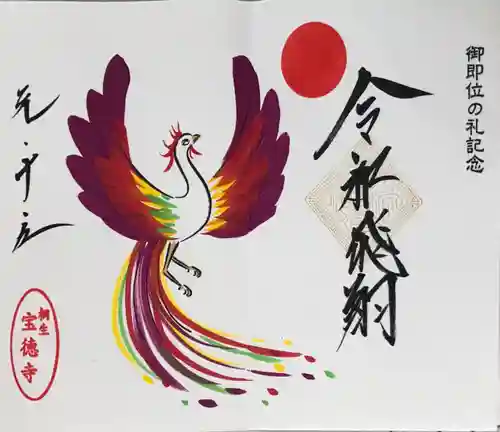 御即位の礼記念
令和飛翔
元・十
桐生
宝徳寺